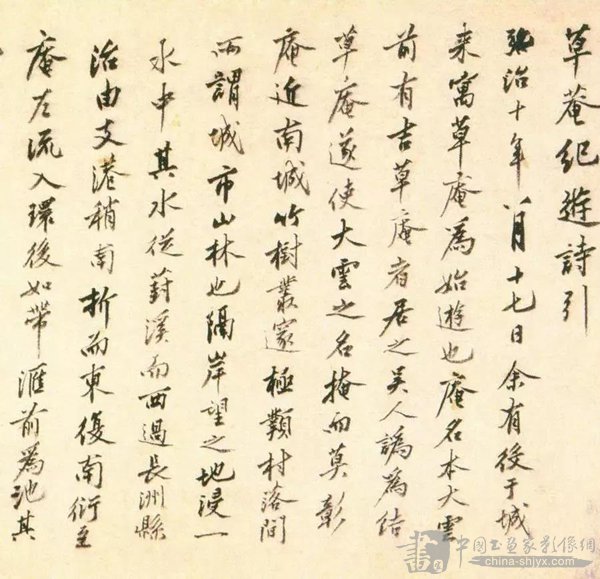 草菴紀遊詩引
弘治十年八月十七日余有役于城
来寓草庵為始遊也庵名本大雲
前有吉草庵者居之吴人譌為結
草庵遂使大雲之名掩而莫彰
庵近南城竹樹叢邃極類村落間
所謂城市山林也隔岸望之地浸一
水中其水從葑溪而西過長洲縣
治由支港稍南折而東復南衍至
庵左流入環後如帶匯前為池其
中国书画家影像網
china-shjyx.com